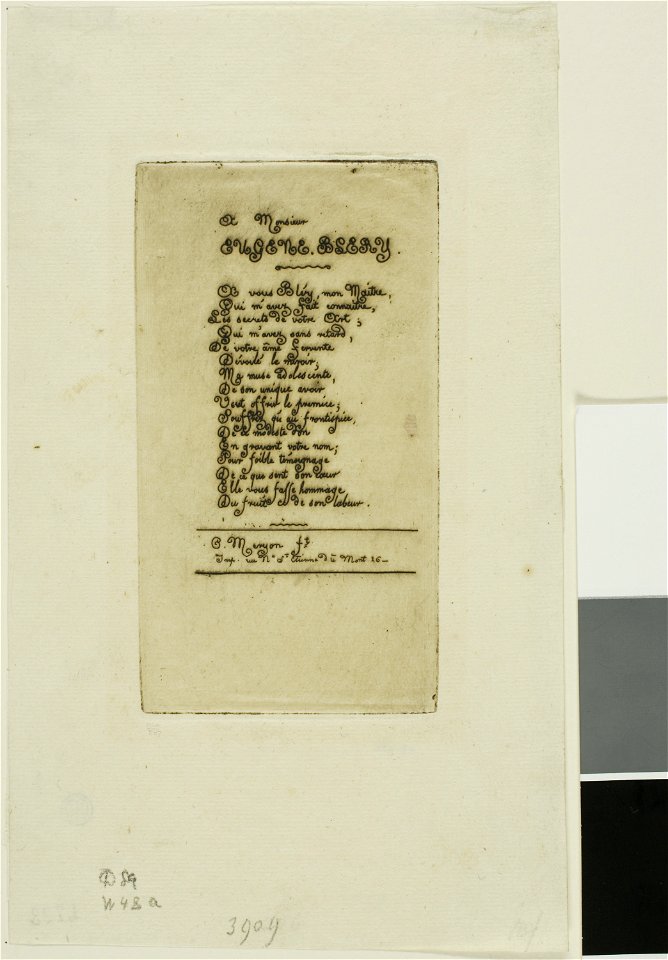 A Monsieur
EUGENE. BLERY.
A vous Bléry mon Maitre,
Qui m'avez fait connaitre,
Les secrets de votre Art;
Qui m'avez sans retard,
De votre âme fervente
Dévoilé le miroir,
Ma muse adolescente,
De son unique avoir
Veut offrir le premice;
Souffrez qu'au frontispice,
De ce modeste don
En gravant votre nom;
Pour foible témoignage
De ce que sent son cœur
Elle vous fasse hommage
Du fruit de son labeur.
C. Meryon ft
Imp. rue Ne St Etienne du Mont 26
D 89
W 43 a
3909